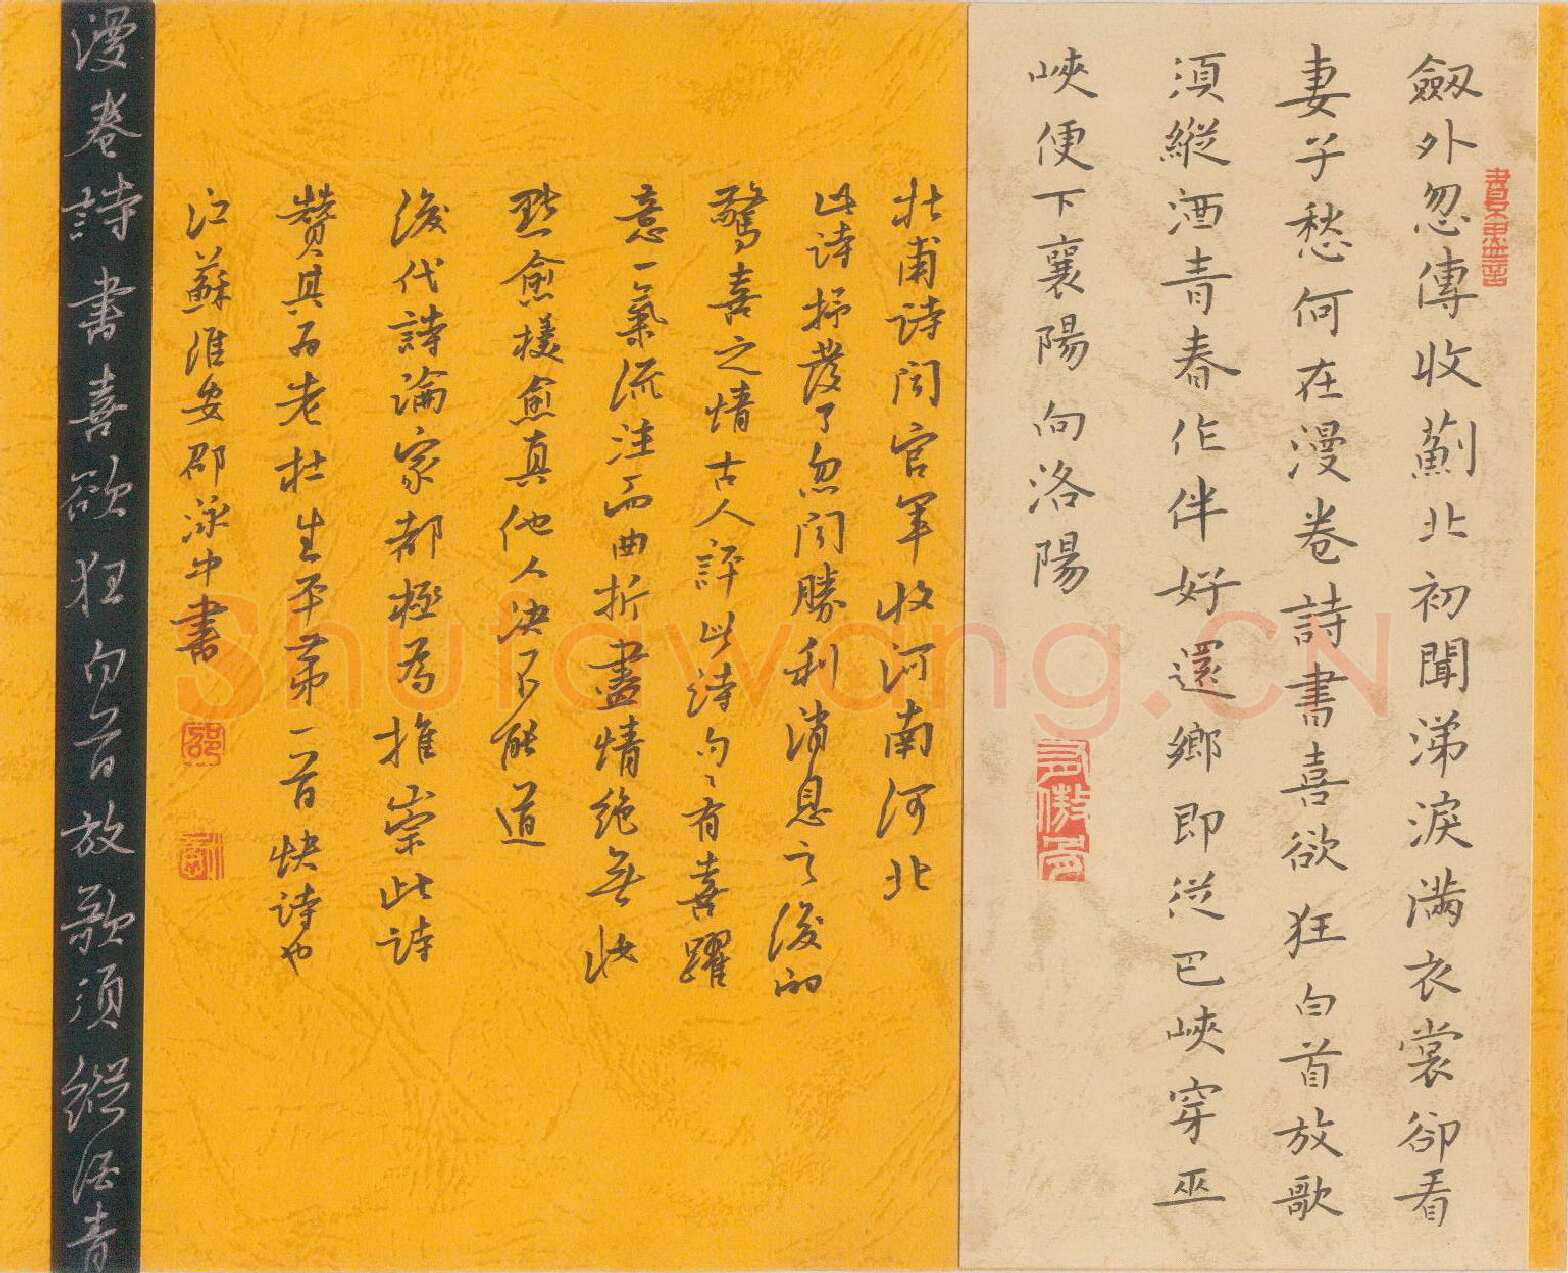 劔外忽傳收薊北初聞涕淚滿衣裳卻看
妻子愁何在漫卷詩書喜欲狂白首放歌
須縱酒青春作伴好還鄉即從巴峽穿巫
峽便下襄陽向洛陽
杜甫诗闻官军收河南河北
此诗抒發了忽闻勝利消息之後的
驚喜之情古人評此诗句〻有喜躍
意一氣流注而曲折盡情绝無妆
點愈樸愈真他人决不能道
後代詩論家都極為推崇此诗
赞其为老杜生平第一首快诗也
江蘇淮安邵泳中書
漫卷詩書喜欲狂白首放歌須縱酒青
Shufawang.CN